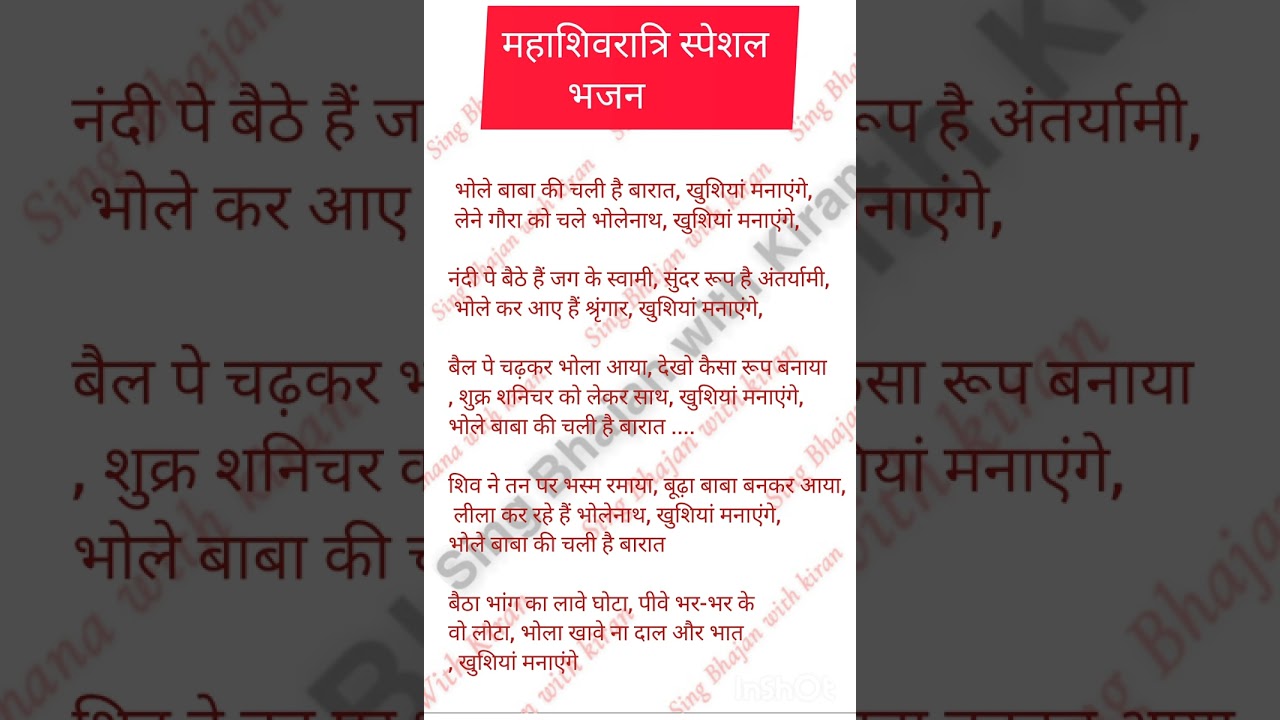 महाशिवरात्रि स्पेशल
भजन
भोले बाबा की चली है बारात, खुशियां मनाएंगे,
लेने गौरा को चले भोलेनाथ, खुशियां मनाएंगे,
नंदी पे बैठे हैं जग के स्वामी, सुंदर रूप है अंतर्यामी,
भोले कर आए हैं श्रृंगार, खुशियां मनाएंगे,
बैल पे चढ़कर भोला आया, देखो कैसा रूप बनाया
, शुक्र शनिचर को लेकर साथ, खुशियां मनाएंगे,
भोले बाबा की चली है बारात ....
शिव ने तन पर भस्म रमाया, बूढ़ा बाबा बनकर आया,
लीला कर रहे हैं भोलेनाथ, खुशियां मनाएंगे,
भोले बाबा की चली है बारात
बैठा भांग का लावे घोटा, पीवे भर-भर के
वो लोटा, भोला खावे ना दाल और भात
, खुशियां मनाएंगे
Sing Bhajan with Kiran
InShOt